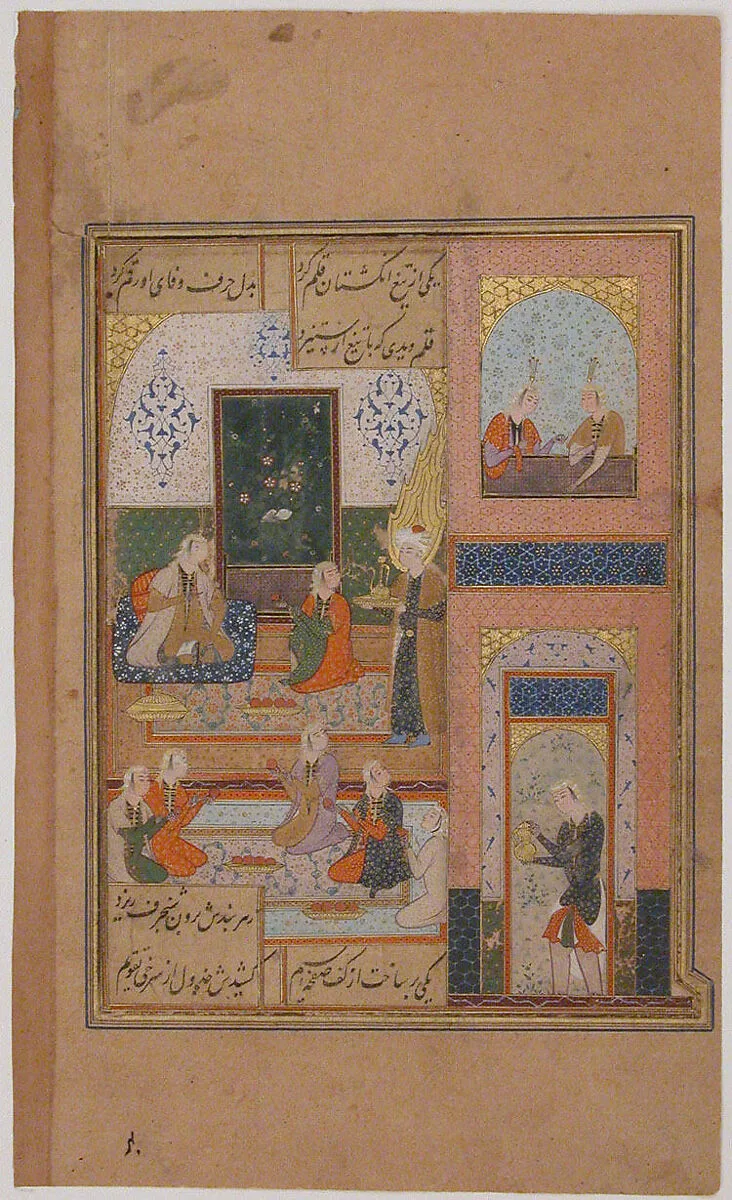 یکی از تیغ انگشتان قلم کرد
بدل حرف وفای او رقم کرد
قلم دیدی که با تیغ ار ستیزد
زهر بندش برون شنجرف ریزد
یکی بر ساخت از کف صفحه سیم
کشیدش جدول از سرخی چو تقویم